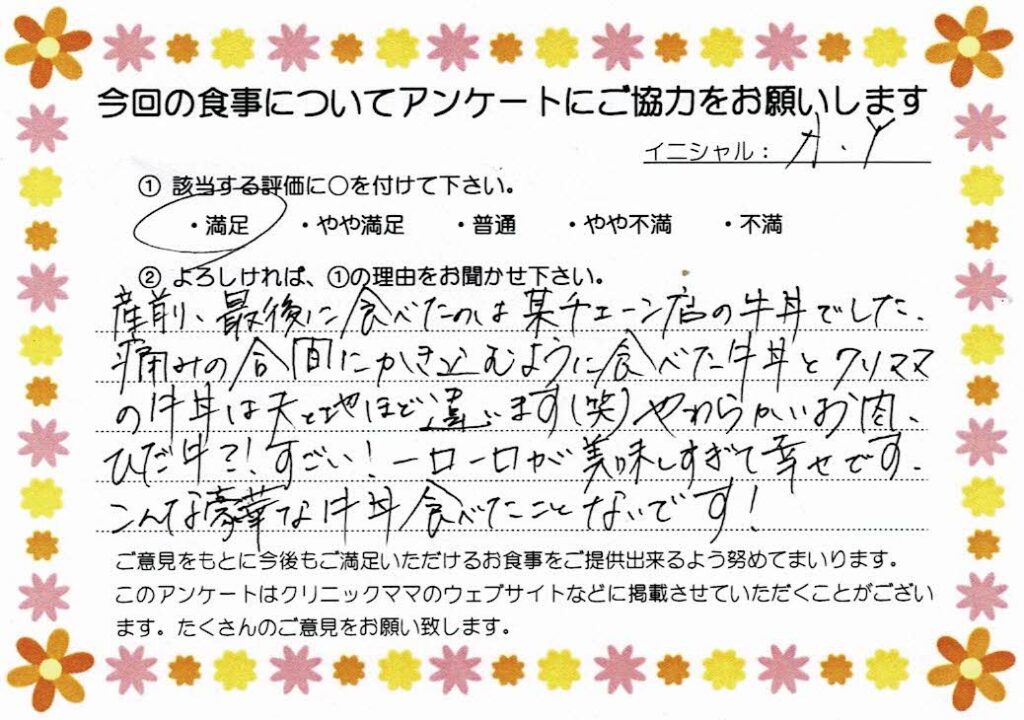 今回の食事についてアンケートにご協力をお願いします
イニシャル： A.Y
① 該当する評価に○を付けて下さい。
・満足 ・やや満足 ・普通 ・やや不満 ・不満
② よろしければ、①の理由をお聞かせ下さい。
産前、最後に食べたのは某チェーン店の牛丼でした。
痛みの合間にかき込むように食べた牛丼とクリママ
の牛丼は天と地ほど違います(笑)やわらかいお肉、
ひだ牛?!すごい!一口一口が美味しすぎて幸せです。
こんな豪華な牛丼食べたことないです!
ご意見をもとに今後もご満足いただけるお食事をご提供出来るよう努めてまいります。
このアンケートはクリニックママのウェブサイトなどに掲載させていただくことがござい
ます。たくさんのご意見をお願い致します。